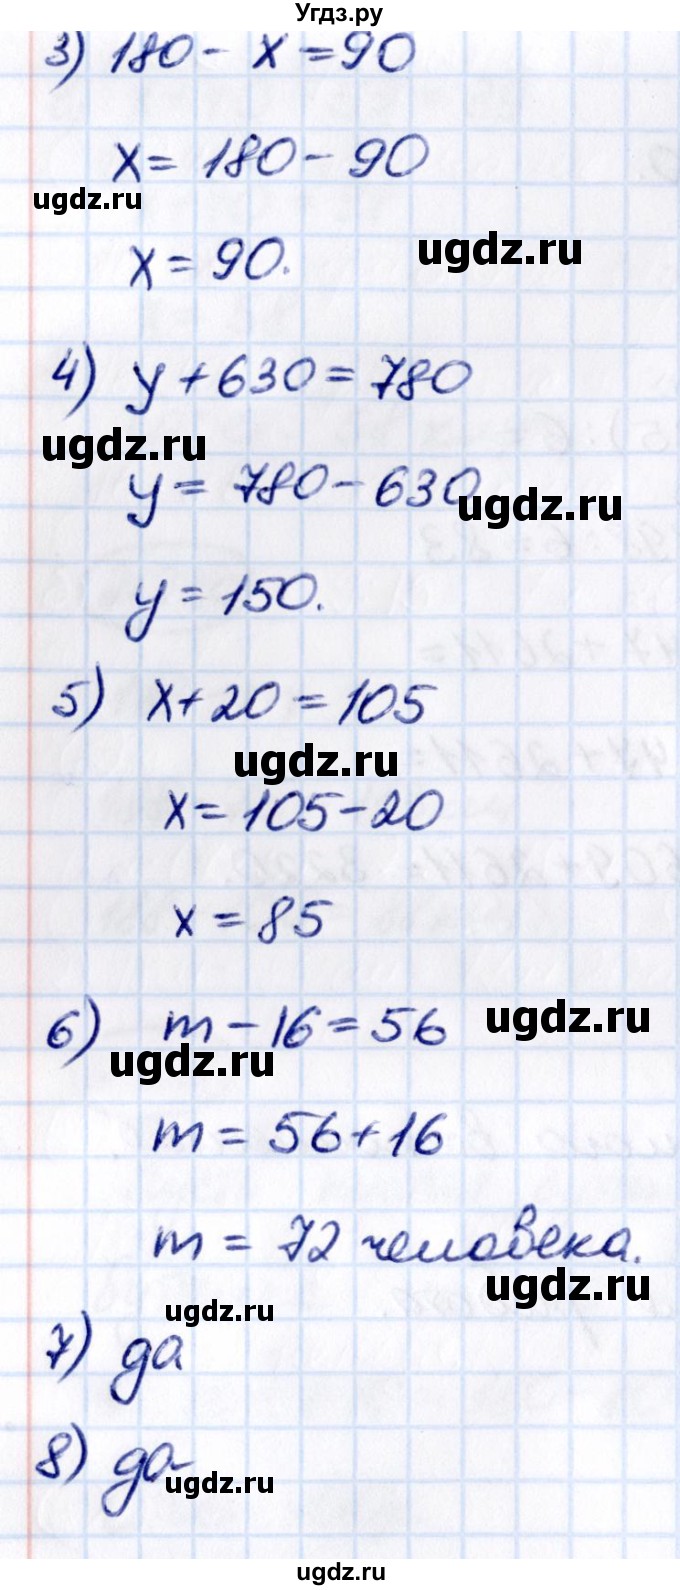 Угдз.ру
3) 180 - x = 90
x = 180 - 90
ugdz.ru
ugdz.ru
x = 90.
4) y + 630 = 780
ugdz.ru
y = 780 - 630
ugdz.ru
y = 150.
5) x + 20 = 105
ugdz.ru
x = 105 - 20
x = 85
6) m - 16 = 56
ugdz.ru
ugdz.ru
m = 56 + 16
m = 72 человека.
ugdz.ru
ugdz.ru
7) да
8) да
ugdz.ru
ugdz.ru